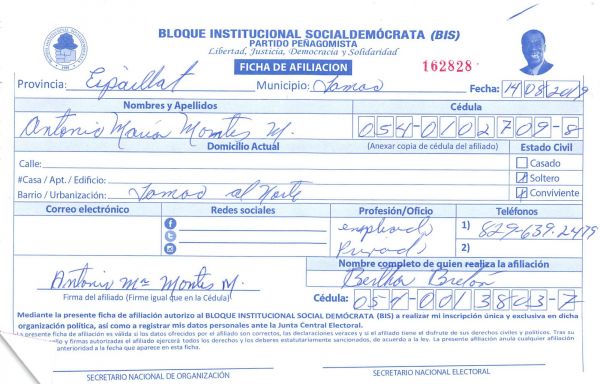 BLOQUE INSTITUCIONAL SOCIALDEMÓCRATA (BIS)
PARTIDO PEÑAGOMISTA
Libertad, Justicia, Democracia y Solidaridad
FICHA DE AFILIACION
162828
Provincia: Espaillat Municipio: Jamao Fecha: 14 08 2019
Nombres y Apellidos Cédula
Antonio María Montes M. 054-0102709-8
Domicilio Actual (Anexar copia de cédula del afiliado) Estado Civil
Calle: Casado
#Casa / Apt. / Edificio: Soltero
Barrio / Urbanización: Jamao al Norte Conviviente
Correo electrónico Redes sociales Profesión/Oficio Teléfonos
empleado 1) 829-639-2479
Privado 2)
Nombre completo de quien realiza la afiliación
Antonio Ma Montes M. Bertha Bretón
Firma del afiliado (Firme igual que en la Cédula) Cédula: 054-0013803-7
Mediante la presente ficha de afiliación autorizo al BLOQUE INSTITUCIONAL SOCIAL DEMÓCRATA (BIS) a realizar mi inscripción única y exclusiva en dicha
organización política, así como a registrar mis datos personales ante la Junta Central Electoral.
La presente ficha de afiliación es válida si los datos ofrecidos por el afiliado son correctos, las declaraciones veraces y si el afiliado tiene el disfrute de sus derechos civiles y políticos. Tras su
sello y firmas autorizadas el afiliado ejercerá todos los derechos y los deberes estatutariamente sancionados, de acuerdo a la ley. La presente afiliación anula cualquier afiliación
anterioridad a la fecha que aparece en esta ficha.
SECRETARIO NACIONAL DE ORGANIZACIÓN SECRETARIO NACIONAL ELECTORAL